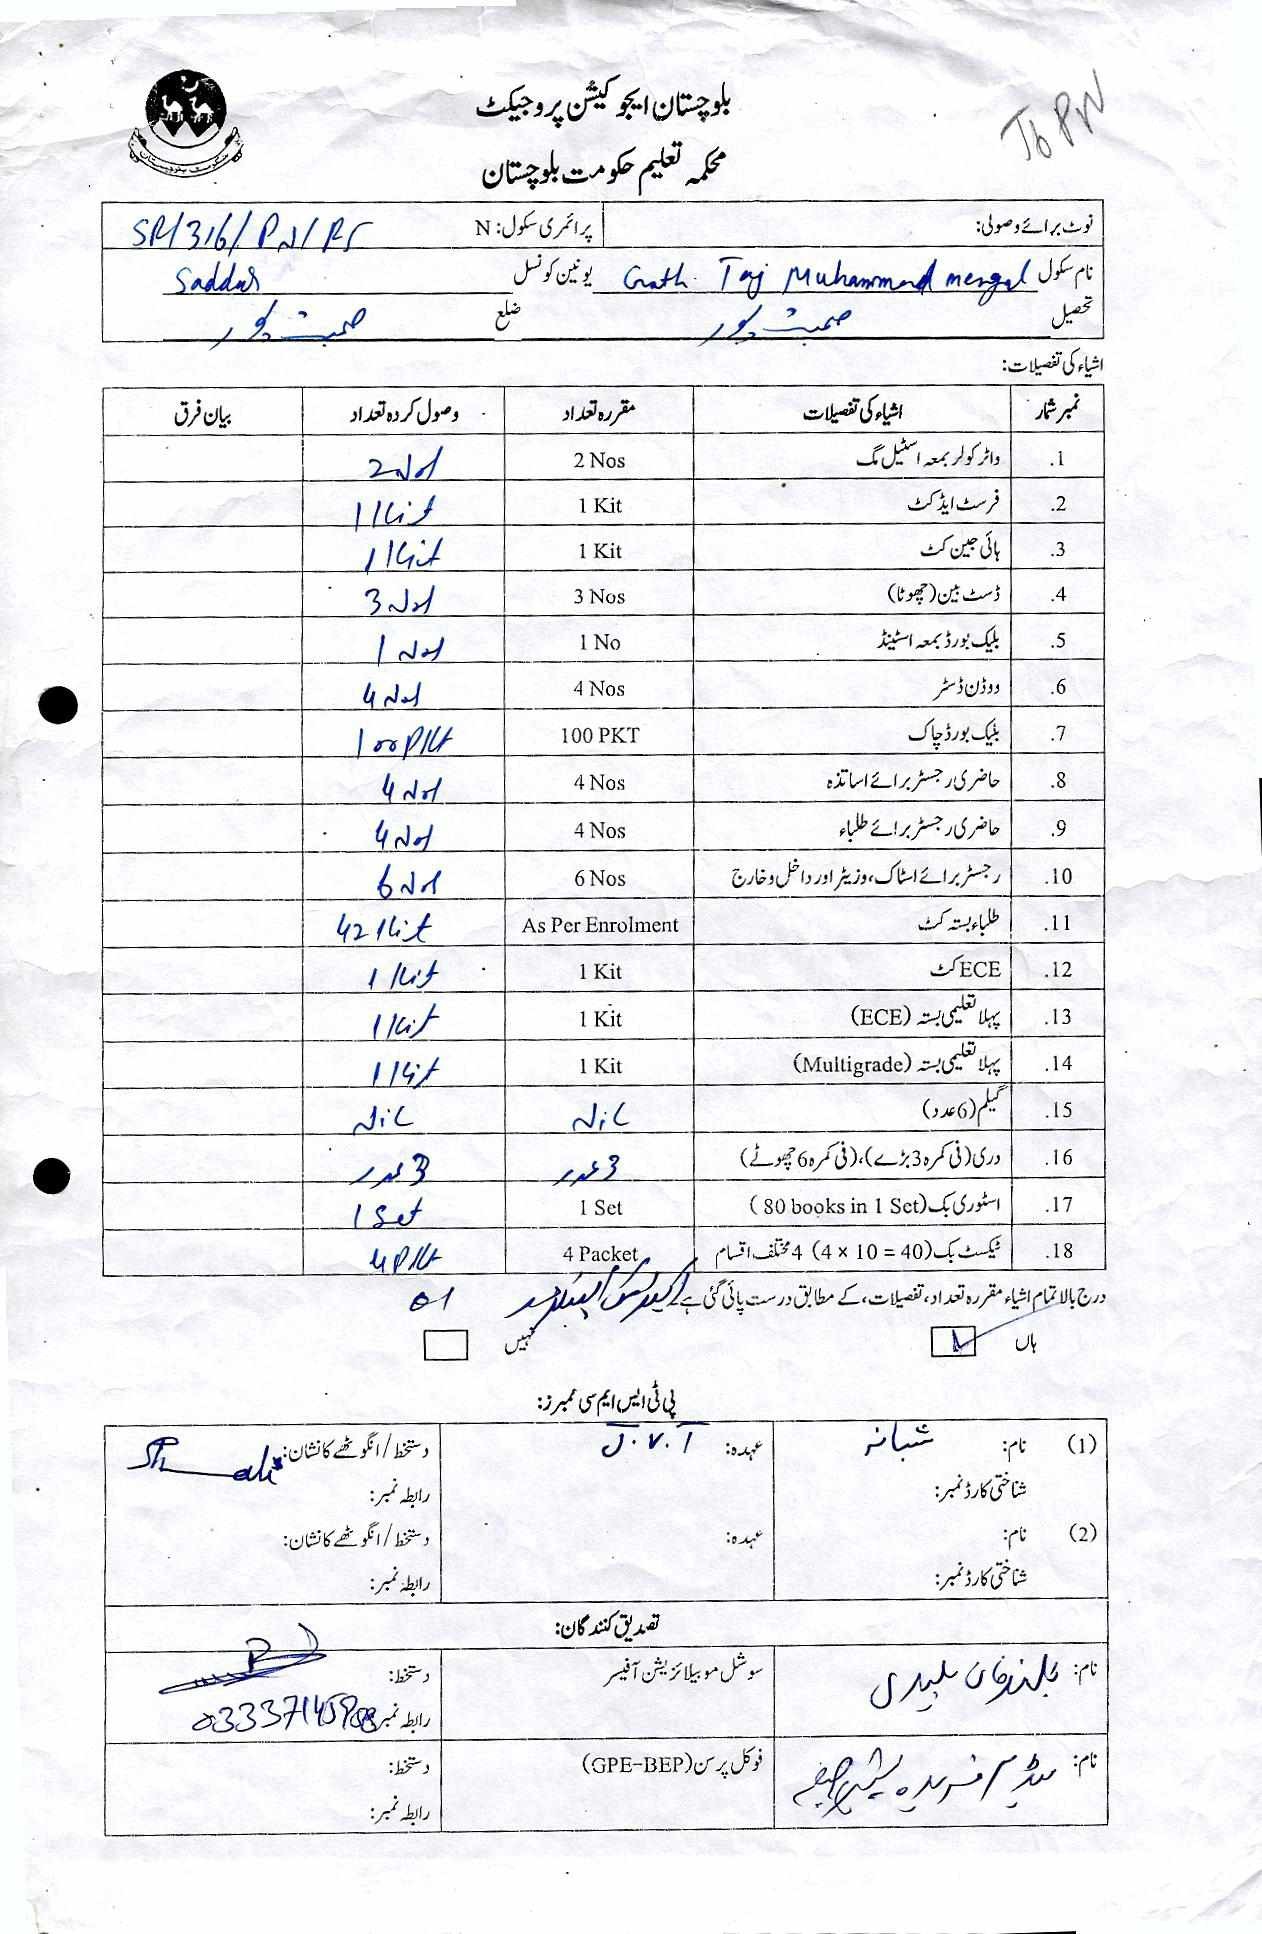 بلوچستان ایجوکیشن پروجیکٹ
محکمہ تعلیم حکومت بلوچستان
نوٹ برائے وصولی: پرائمری سکول: N SR/316/PN/RS
نام سکول Goth Taj Muhammad mengal یونین کونسل Saddar
تحصیل صحبت پور ضلع صحبت پور
اشیاء کی تفصیلات:
نمبر شمار اشیاء کی تفصیلات مقررہ تعداد وصول کردہ تعداد بیان فرق
1. واٹر کولر بمعہ اسٹیل مگ 2 Nos 2 Nos
2. فرسٹ ایڈ کٹ 1 Kit 1 Kit
3. ہائی جین کٹ 1 Kit 1 Kit
4. ڈسٹ بین (چھوٹا) 3 Nos 3 Nos
5. بلیک بورڈ بمعہ اسٹینڈ 1 No 1 Nos
6. ووڈن ڈسٹر 4 Nos 4 Nos
7. بلیک بورڈ چاک 100 PKT 100 PKt
8. حاضری رجسٹر برائے اساتذہ 4 Nos 4 Nos
9. حاضری رجسٹر برائے طلباء 4 Nos 4 Nos
10. رجسٹر برائے اسٹاک، وزیٹر اور داخل و خارج 6 Nos 6 Nos
11. طلباء بستہ کٹ As Per Enrolment 42 Kit
12. ECE کٹ 1 Kit 1 Kit
13. پہلا تعلیمی بستہ (ECE) 1 Kit 1 Kit
14. پہلا تعلیمی بستہ (Multigrade) 1 Kit 1 Kit
15. گیلم (6 عدد) NiL NiL
16. دری (فی کمرہ 3 بڑے)، (فی کمرہ 6 چھوٹے) 3 عدد 3 عدد
17. اسٹوری بک (80 books in 1 Set) 1 Set 1 Set
18. ٹیکسٹ بک (4 × 10 = 40) 4 مختلف اقسام 4 Packet 4 PKt
درج بالا تمام اشیاء مقررہ تعداد، تفصیلات، کے مطابق درست پائی گئی ہے۔ 01
ہاں نہیں
پی ٹی ایس ایم سی ممبرز:
(1) نام: شبانہ عہدہ: J.V.T دستخط/انگوٹھے کا نشان:
شناختی کارڈ نمبر: رابطہ نمبر:
(2) نام: عہدہ: دستخط/انگوٹھے کا نشان:
شناختی کارڈ نمبر: رابطہ نمبر:
تصدیق کنندگان:
نام: سوشل موبیلائزیشن آفیسر دستخط:
رابطہ نمبر:
نام: میڈیم فریدہ فوکل پرسن (GPE-BEP) دستخط:
رابطہ نمبر: